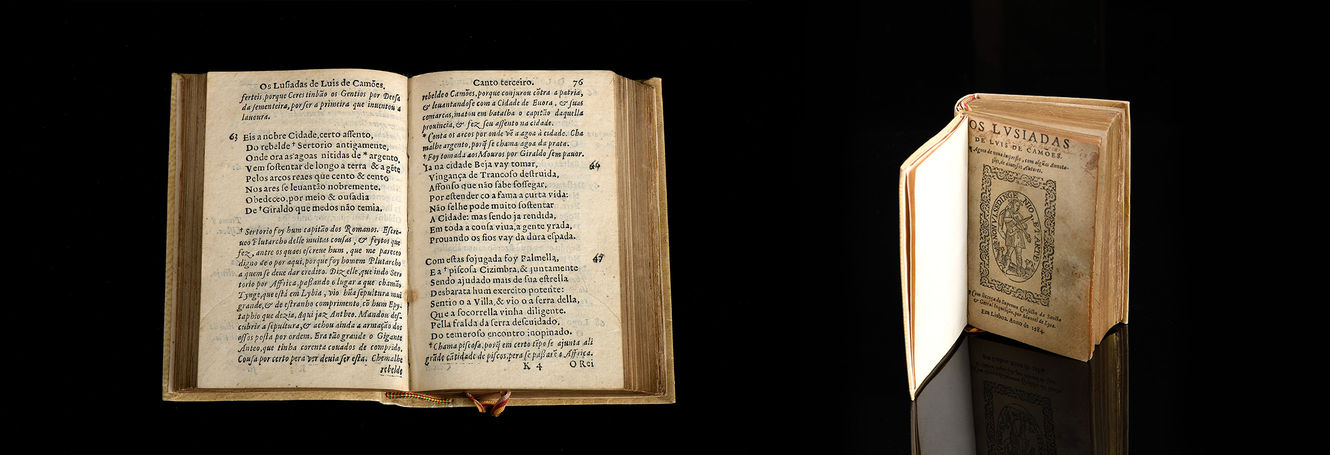 Os Lusiadas de Luis de Camões.
ferteis, porque Ceres tinhão os Gentios por Deosa
da sementeira, por ser a primeira que inuentou a
lauoura.
63 Eis a nobre Cidade, certo assento,
Do rebelde * Sertorio antigamente,
Onde ora as agoas nitidas de * argento,
Vem sostentar de longo a terra & a gẽte
Pelos arcos reaes que cento & cento
Nos ares se leuantão nobremente,
Obedeceo, por meio & ousadia
De †Giraldo que medos não temia.
* Sertorio foy hum capitão dos Romanos. Escre-
ueo Plutarcho delle muitas cousas, & feytos que
fez, antre os quaes escreue hum, que me pareceo
digno de o por aqui, porque foy homem Plutarcho
a quem se deue dar credito. Diz elle, que indo Ser
torio por Affrica, passando o lugar a que chamão
Tynge, que está em Lybia, vio hũa sepultura mui
grande, & de estranho comprimento, cõ hum Epy-
taphio que dezia, Aqui jaz Antheo. Mandou des-
cubrir a sepultura, & achou ainda a armação dos
ossos posta por ordem. Era tão grande o Gigante
Anteo, que tinha corenta couados de comprido.
Cousa por certo pera ver deuia ser esta. Chemalhe
rebelde
Canto terceiro. 76
rebelde o Camões, porque conjurou cõtra a patria,
& leuantandose com a Cidade de Euora, & suas
comarcas, matou em batalha o capitão daquella
prouincia, & fez seu assento na cidade.
* Conta os arcos por onde vẽ a agoa à cidade. Cha
malhe argento, porq̃ se chama agoa da prata.
† Foy tomada aos Mouros por Giraldo sem pauor.
Ia na cidade Beja vay tomar, 64
Vingança de Trancoso destruida,
Affonso que não sabe sossegar,
Por estender co a fama a curta vida:
Não selhe pode muito sostentar
A Cidade: mas sendo ja rendida,
Em toda a cousa viua, a gente yrada,
Prouando os fios vay da dura espada.
Com estas sojugada foy Palmella,
E a † piscosa Cizimbra, & juntamente
Sendo ajudado mais de sua estrella
Desbarata hum exercito potente:
Sentio o a Villa, & vio o a serra della,
Que a socorrella vinha diligente.
Pella fralda da serra descuidado,
Do temeroso encontro inopinado.
† Chama piscosa, porq̃ em certo tẽpo se ajunta ali
grãde cãtidade de piscos, pera se passarẽ a Affrica.
K 4 O Rei
OS LVSIADAS
DE LVIS DE CAMÕES.
Agora de nouo impresso, com algũas Annota-
ções de diuersos Autores.
Com licença do Supremo Conselho da Sancta
& Geral Inquisição, por Manoel de Lyra.
Em Lisboa, Anno de 1584